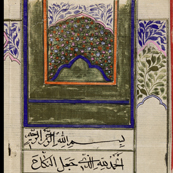 بسم الله الرحمن الرحيم
الحمد لله الذي جعل الكلام